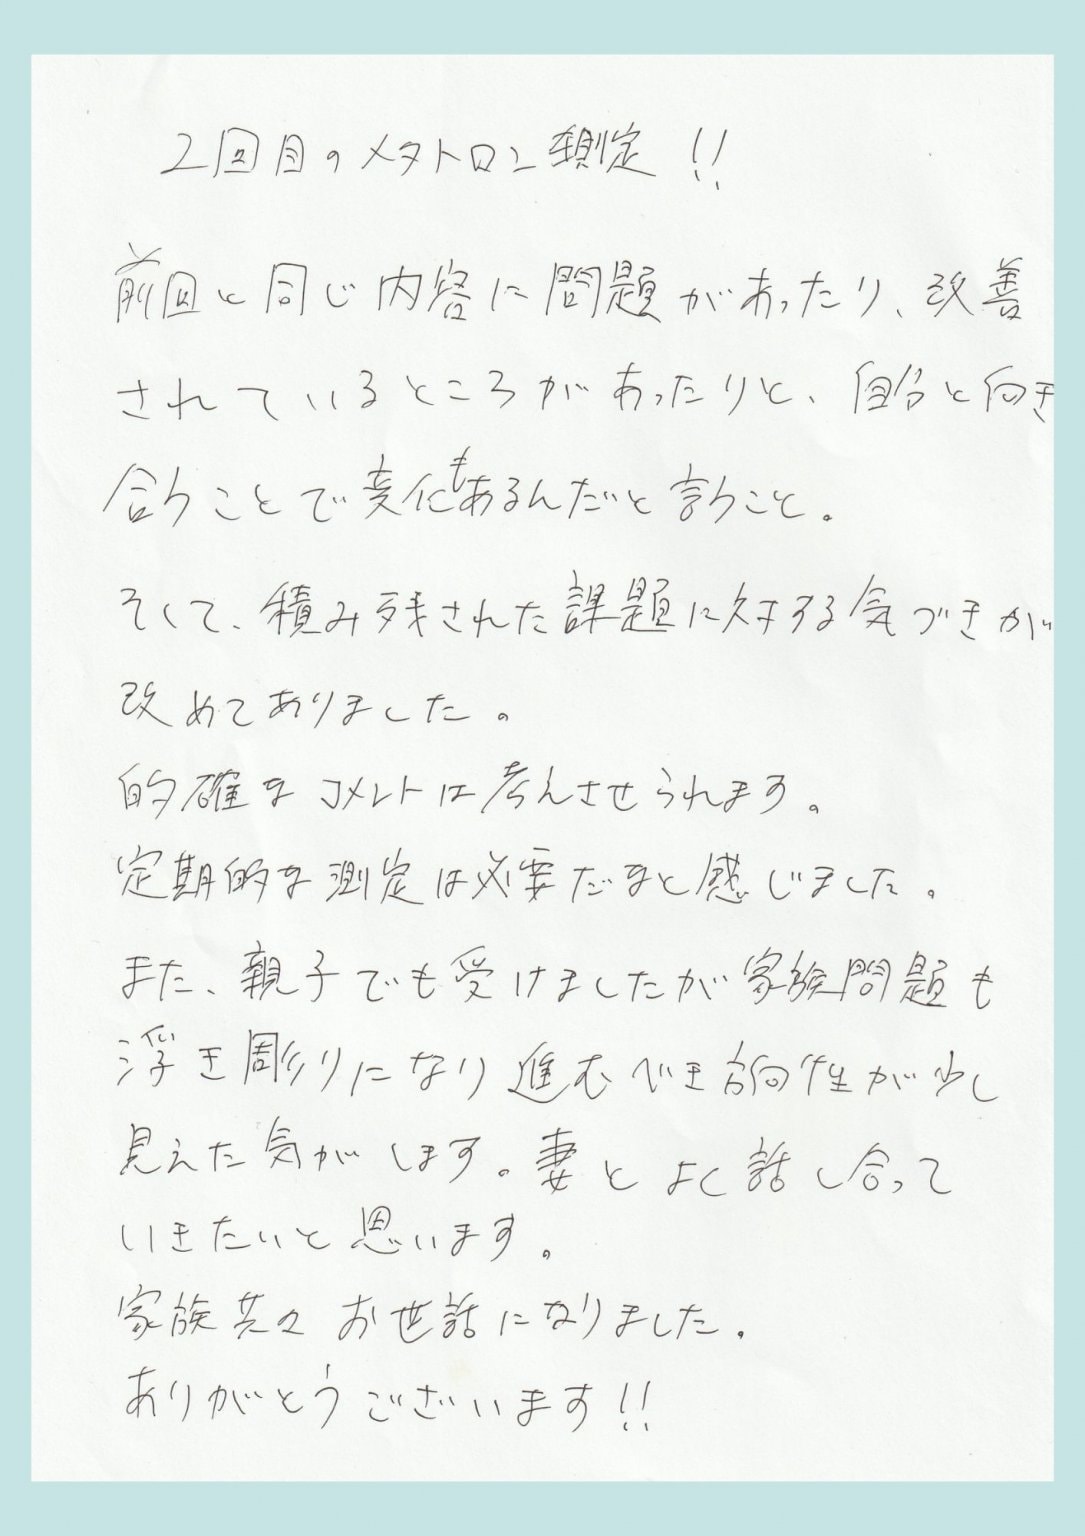 2回目のメタトロン測定!!
前回と同じ内容に問題があったり、改善
されているところがあったりと、自分と向き
合うことで変化もあるんだと言うこと。
そして、積み残された課題に対する気づきが
改めてありました。
的確なコメントに考えさせられます。
定期的な測定は必要だなと感じました。
また、親子でも受けましたが家族問題も
浮き彫りになり進むべき方向性が少し
見えた気がします。妻とよく話し合って
いきたいと思います。
家族共々お世話になりました。
ありがとうございます!!